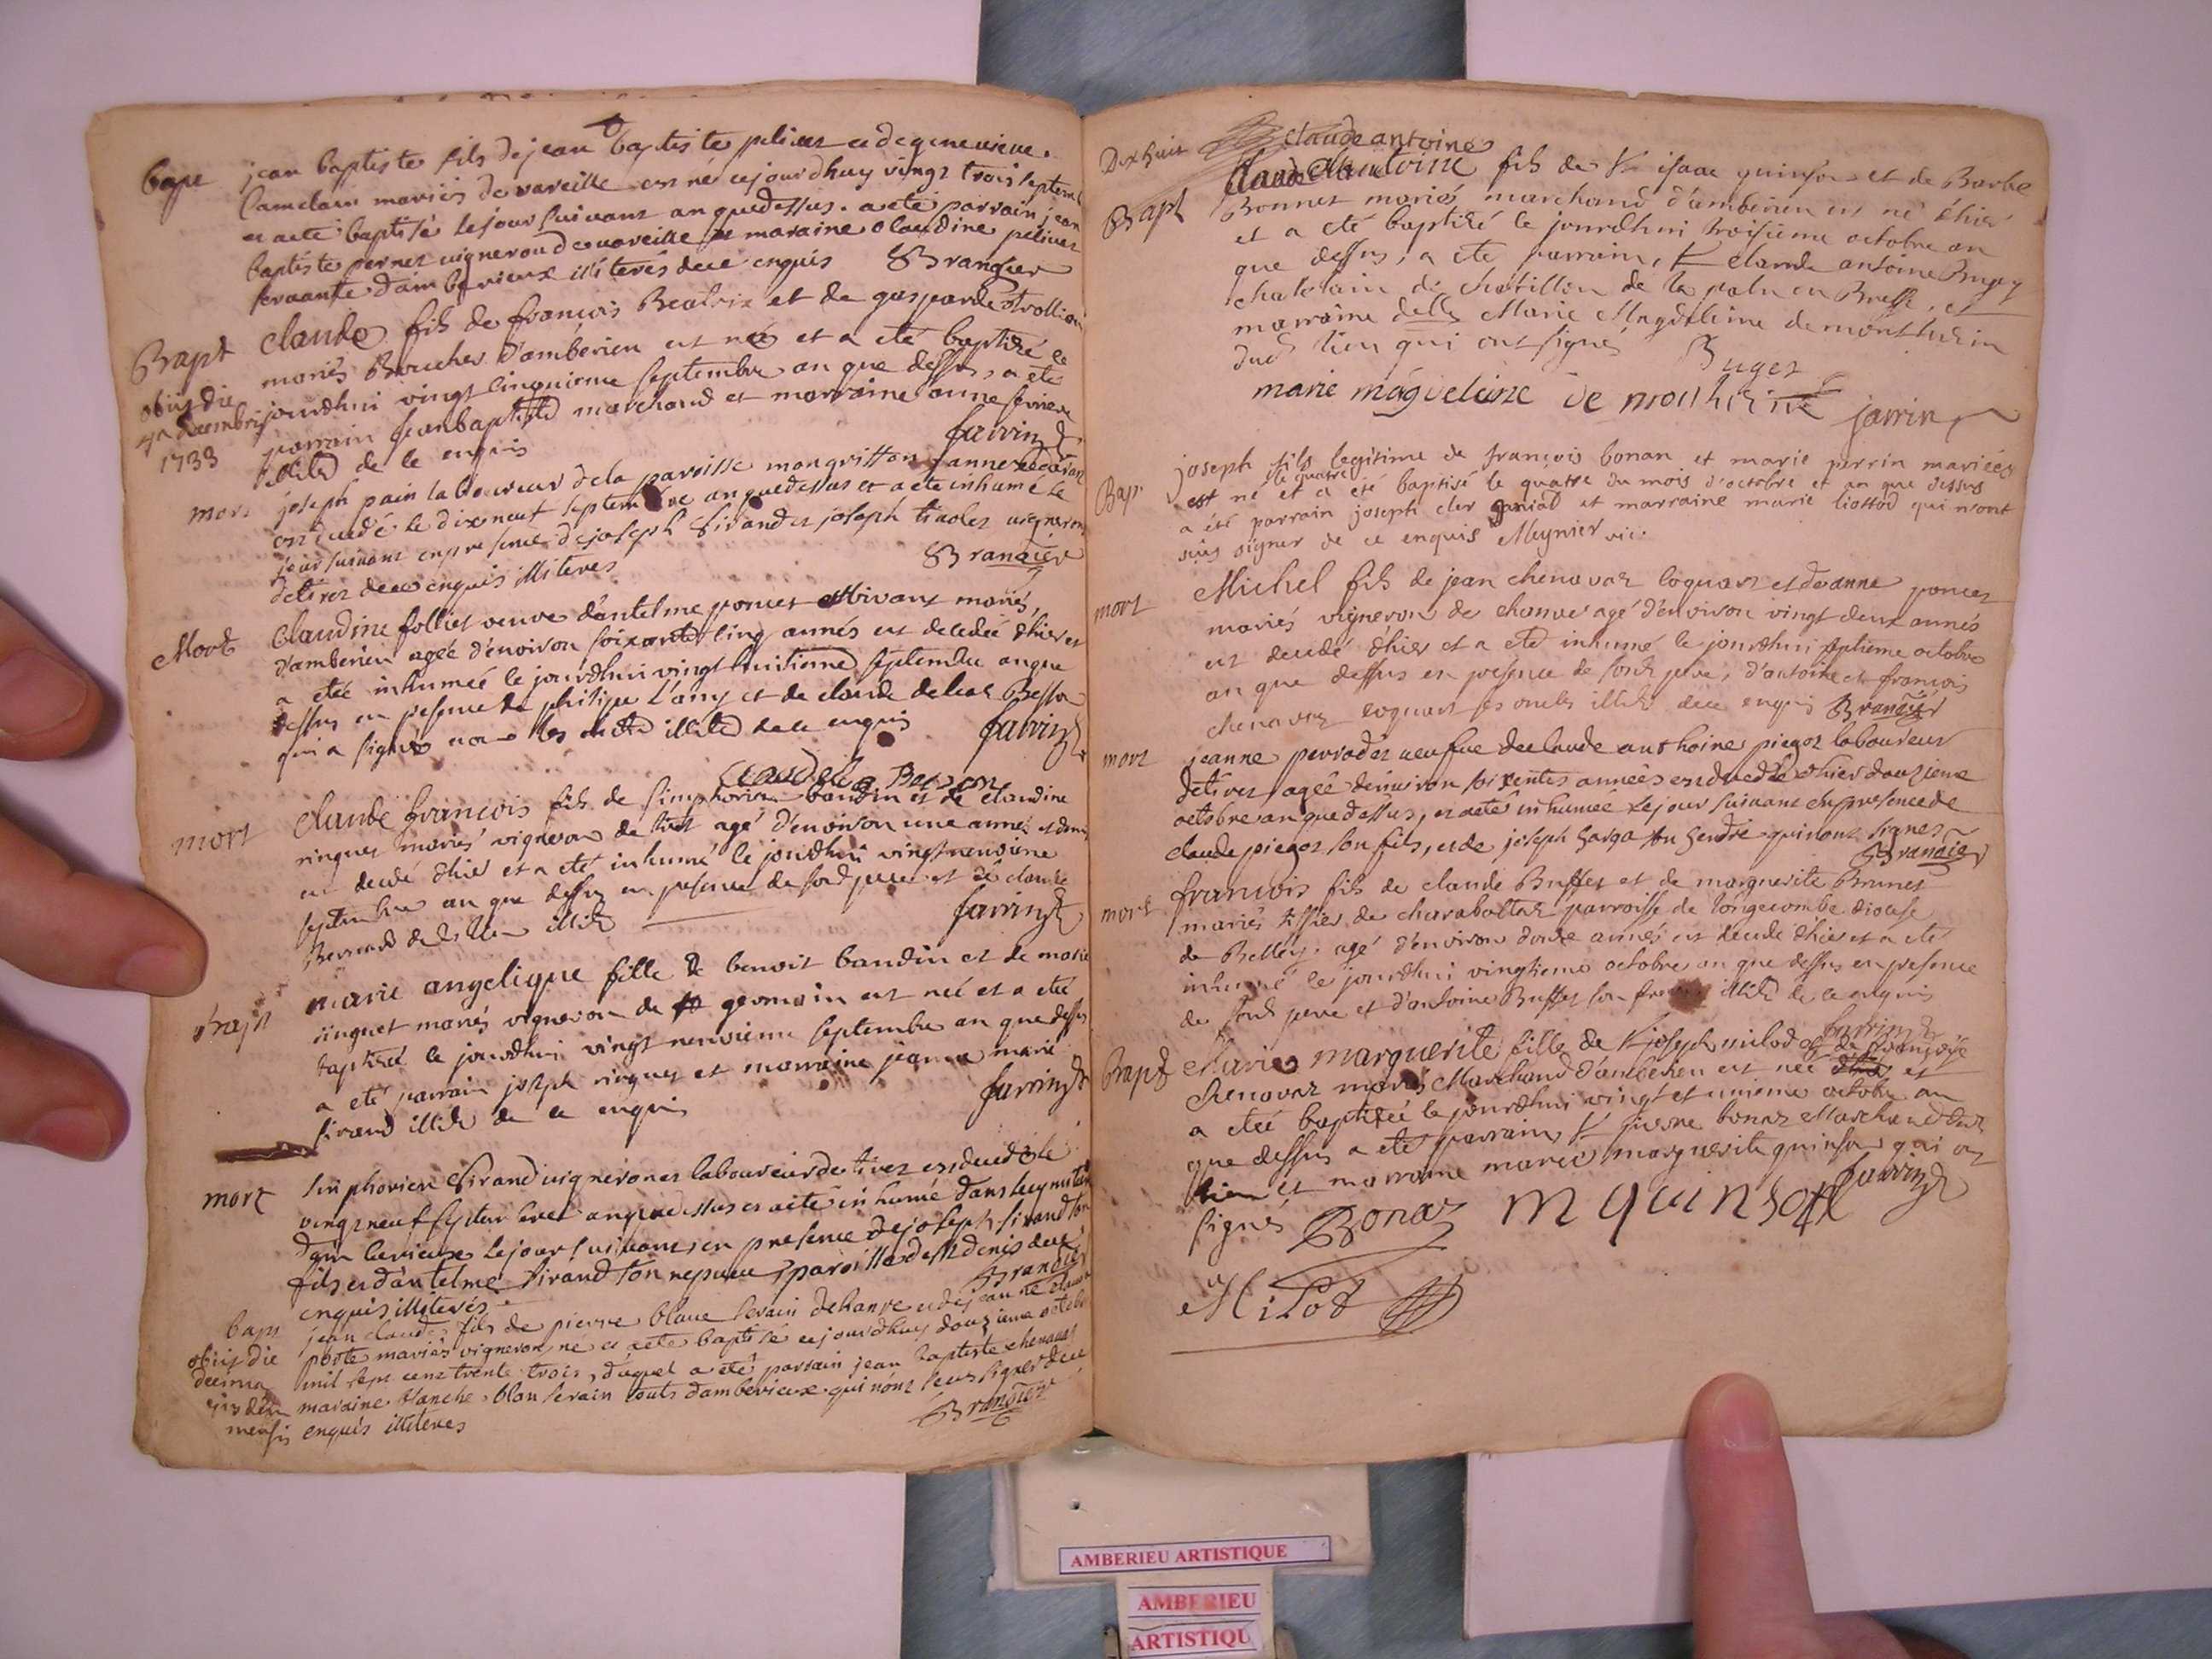 bapt
jean baptiste fils de jean baptiste peliuet et de geneuieue
mariés de vareille est né cejourdhuy vingt trois septembre
et a eté baptisé le jour suivant an que dessus. a eté parrain jean
baptiste pernet vigneron de vareille et maraine claudine peliuet
servante d'amberieux illiterés de ce enquis Brangier
Bapt
claude fils de francois Beatrix et de gasparde trollion
mariés Boucher d'amberieu est né et a eté baptisé le
obiit die
jourdhui vingt cinquieme septembre an que dessus, a eté
4a decembris
parrain jean baptiste marchand et marraine anne
1733
illit de ce enquis Jarrin
mort
joseph pain laboureur de la paroisse
est decedé le dix neuf septembre an que dessus et a eté inhumé le
jour suivant en presence de joseph Sirand et joseph tissier vigneron
de tiret de ce enquis illiteres Brangier
Mort
Claudine folliet veuve d'antelme poncet vivant mariés,
d'amberieu agée d'environ soixante cinq années est decedée d'hier et
a eté inhumée le jourdhui vingt huitieme septembre an que
dessus en presence de philipe Lamy et de claude Besson
qui a signé non les illit de ce enquis Jarrin
Claude Besson
mort
Claude françois fils de simphorien baudin et de claudine
ringuet mariés vigneron de tiret agé d'environ une année et demi
est decedé d'hier et a eté inhumé le jourdhui vingt neuvieme
septembre an que dessus en presence de sond pere et de claude
Bernard illit Jarrin
Bapt
marie angelique fille de benoit baudin et de marie
ringuet mariés vigneron de st germain est née et a eté
baptisée le jourdhui vingt neuvieme septembre an que dessus
a eté parrain joseph ringuet et marraine jeanne marie
sirand illit de ce enquis Jarrin
mort
sinphorien Sirand vigneron et laboureur de tiret est decedé le
vingt neuf septembre an que dessus et a eté inhumé dans le cymetiere
d'amberieux le jour suivant en presence de joseph sirand son
fils et d'antelme Sirand son nepueu, paroisse de st denis de ce
enquis illiterés Brangier
bapt
jean claude fils de pierre blanc serain et de jeanne
obiit die
poste mariés vigneron, né et a eté baptisé cejourdhuy douzieme octobre
decima
mil sept cens trente trois, duquel a eté parrain jean baptiste chenavaz
ejusdem
maraine blanche blan serain touts d'amberieux qui n'ont sceu signer de ce
mensis
enquis illiteres Brangier
Dix huit
claude antoine
Bapt
claude antoine fils de Sr isaac quinson et de Barbe
Bonnet mariés marchand d'amberieu est né d'hier
et a eté baptisé le jourdhui troisieme octobre an
que dessus, a eté parrain, Sr claude antoine Buget
chatelain de chatillon de la palu en Bresse, et
marraine delle Marie Magdeleine de montluzin
dud lieu qui ont signé Buget
marie magdeleine de montluzin jarrin
Bap
joseph fils legitime de françois bonan et marie perrin mariées
le quatre
est né et a été baptisé le quatre du mois d'octobre et an que dessus
a été parrain joseph cler et marraine marie liottod qui n'ont
sçus signer de ce enquis Meynier vic.
mort
Michel fils de jean chenavaz coquart et de anne poncet
mariés vigneron de chanve agé d'environ vingt deux années
est decedé d'hier et a eté inhumé le jourdhui septieme octobre
an que dessus en presence de sond pere, d'antoine et françois
chenavaz coquart ses oncles illit de ce enquis Brangier
mort
jeanne perrodet veufue de claude anthoine piegot laboureur
de tiret agée d'environ années est decedée d'hier douzieme
octobre an que dessus, et a eté inhumée le jour suivant en presence de
claude piegot son fils, et de joseph sarga son gendre qui n'ont signés
Brangier
mort
françois fils de claude Buffet et de marguerite Brunet
mariés tissier de charabottaz parroisse de longecombe diocese
de Belley. agé d'environ douze années est decedé d'hier et a eté
inhumé le jourdhui vingtieme octobre an que dessus en presence
de sond pere et d'antoine Buffet son frere illit de ce enquis
Jarrin
Bapt
Marie marguerite fille de Sr joseph milod et de françoise
Chenavaz mariés Marchand d'amberieu est née et
a eté baptisée le jourdhui vingt et unieme octobre an
que dessus a eté parrain, Sr pierre bonaz Marchand dud
lieu et marraine marie marguerite quinson qui ont
signé Bonaz M quinson Jarrin
Milod
AMBERIEU ARTISTIQUE
AMBERIEU
ARTISTIQU